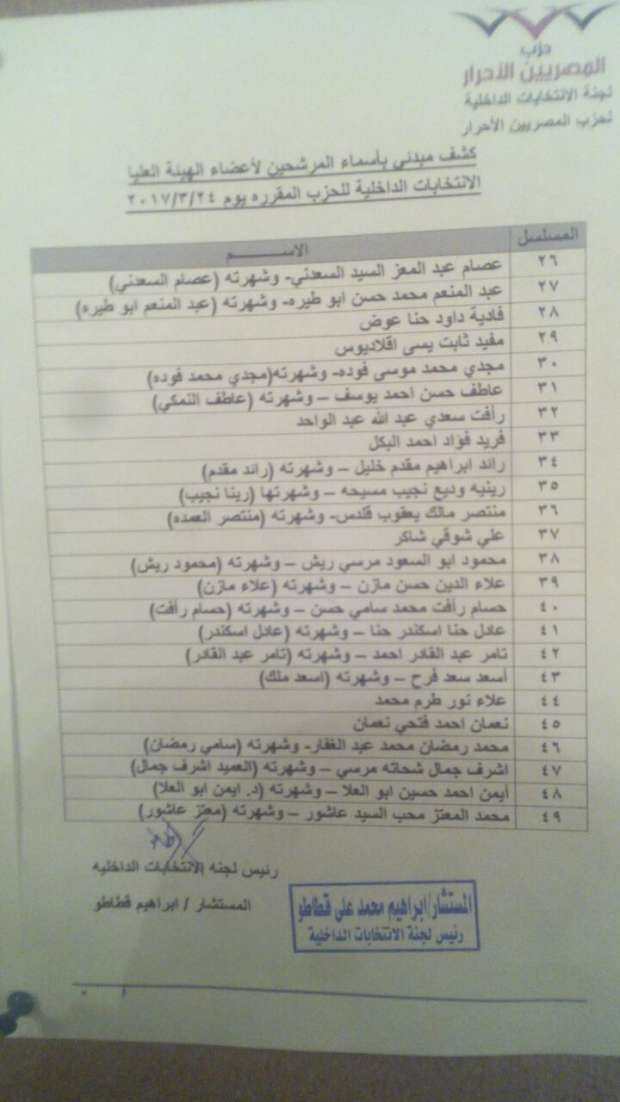 حزب
المصريين الأحرار
لجنة الانتخابات الداخلية
لحزب المصريين الأحرار
كشف مبدئي بأسماء المرشحين لأعضاء الهيئة العليا
الانتخابات الداخلية للحزب المقرره يوم ٢٠١٧/٣/٢٤
المسلسل الاســــــم
٢٦ عصام عبد المعز السيد السعدني- وشهرته (عصام السعدني)
٢٧ عبد المنعم محمد حسن ابو طيره- وشهرته (عبد المنعم ابو طيره)
٢٨ فادية داود حنا عوض
٢٩ مفيد ثابت يسى اقلاديوس
٣٠ مجدي محمد موسى فوده- وشهرته(مجدي محمد فوده)
٣١ عاطف حسن احمد يوسف – وشهرته (عاطف النمكي)
٣٢ رأفت سعدي عبد الله عبد الواحد
٣٣ فريد فؤاد احمد البكل
٣٤ رائد ابراهيم مقدم خليل – وشهرته (رائد مقدم)
٣٥ رينيه وديع نجيب مسيحه – وشهرتها (رينا نجيب)
٣٦ منتصر مالك يعقوب قلدس- وشهرته (منتصر العمده)
٣٧ علي شوقي شاكر
٣٨ محمود ابو السعود مرسي ريش – وشهرته (محمود ريش)
٣٩ علاء الدين حسن مازن – وشهرته (علاء مازن)
٤٠ حسام رأفت محمد سامي حسن – وشهرته (حسام رأفت)
٤١ عادل حنا اسكندر حنا – وشهرته (عادل اسكندر)
٤٢ تامر عبد القادر احمد – وشهرته (تامر عبد القادر)
٤٣ أسعد سعد فرح – وشهرته (اسعد ملك)
٤٤ علاء نور طرم محمد
٤٥ نعمان احمد فتحي نعمان
٤٦ محمد رمضان محمد عبد الغفار- وشهرته (سامي رمضان)
٤٧ اشرف جمال شحاته مرسي – وشهرته (العميد اشرف جمال)
٤٨ أيمن احمد حسين ابو العلا – وشهرته (د. ايمن ابو العلا)
٤٩ محمد المعتز محب السيد عاشور – وشهرته (معتز عاشور)
رئيس لجنه الانتخابات الداخليه
المستشار / ابراهيم قطاطو
المستشار/ابراهيم محمد على قطاطو
رئيس لجنة الانتخابات الداخلية